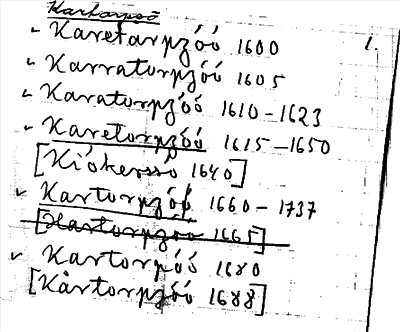 Kartorpsö
Karetarpzóó 1600 1.
Karratorpzóó 1605
Karatorpzóó 1610-1623
Karetorpzóó 1615-1650
[Kiókerssó 1640]
Kartorpzóó 1660-1737
[Kartorpzóó 1665]
Kartorpóó 1680
[Kårtorpzóó 1688]